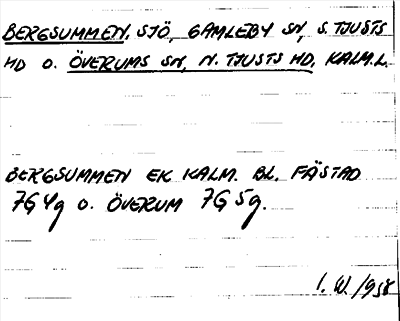 BERGSUMMEN, SJÖ, GAMLEBY SN, S. TJUSTS
HD O. ÖVERUMS SN, N. TJUSTS HD, KALM.L.
BERGSUMMEN EK KALM. BL. FÄSTAD
7G 4g O. ÖVERUM 7G 5g.
I. W. /958